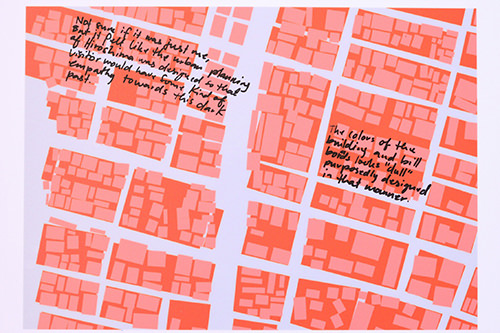 Not sure if it was just me,
But it felt like the urban planning
of Hiroshima was designed so that
visitor would have some kind of
empathy towards this dark
past.
The colors of the
building and bill
boards looks "dull"
purposedly designed
in that manner.